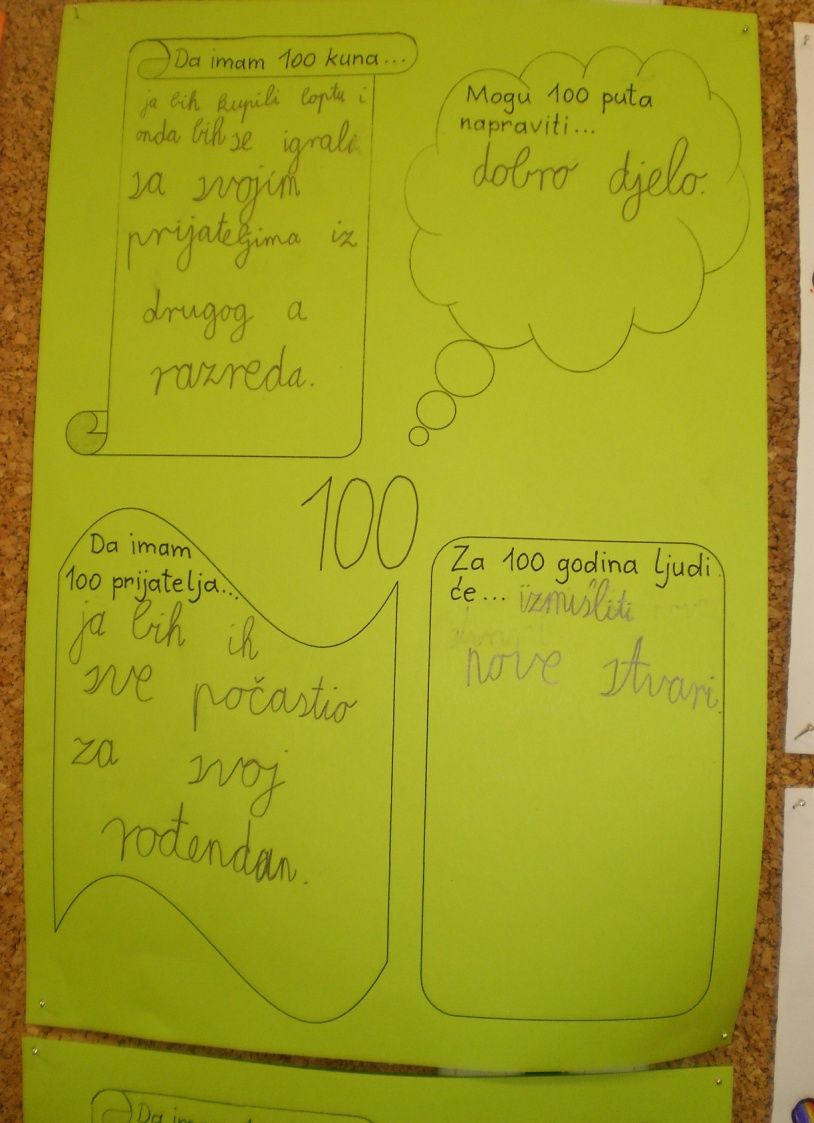 Da imam 100 kuna...
ja bih kupili loptu i
onda bih se igrali
sa svojim
prijateljima iz
drugog a
razreda.
Mogu 100 puta
napraviti...
dobro djelo.
100
Da imam
100 prijatelja...
ja bih ih
sve počastio
za svoj
rođendan.
Za 100 godina ljudi
će... izmisliti
nove stvari.
Da